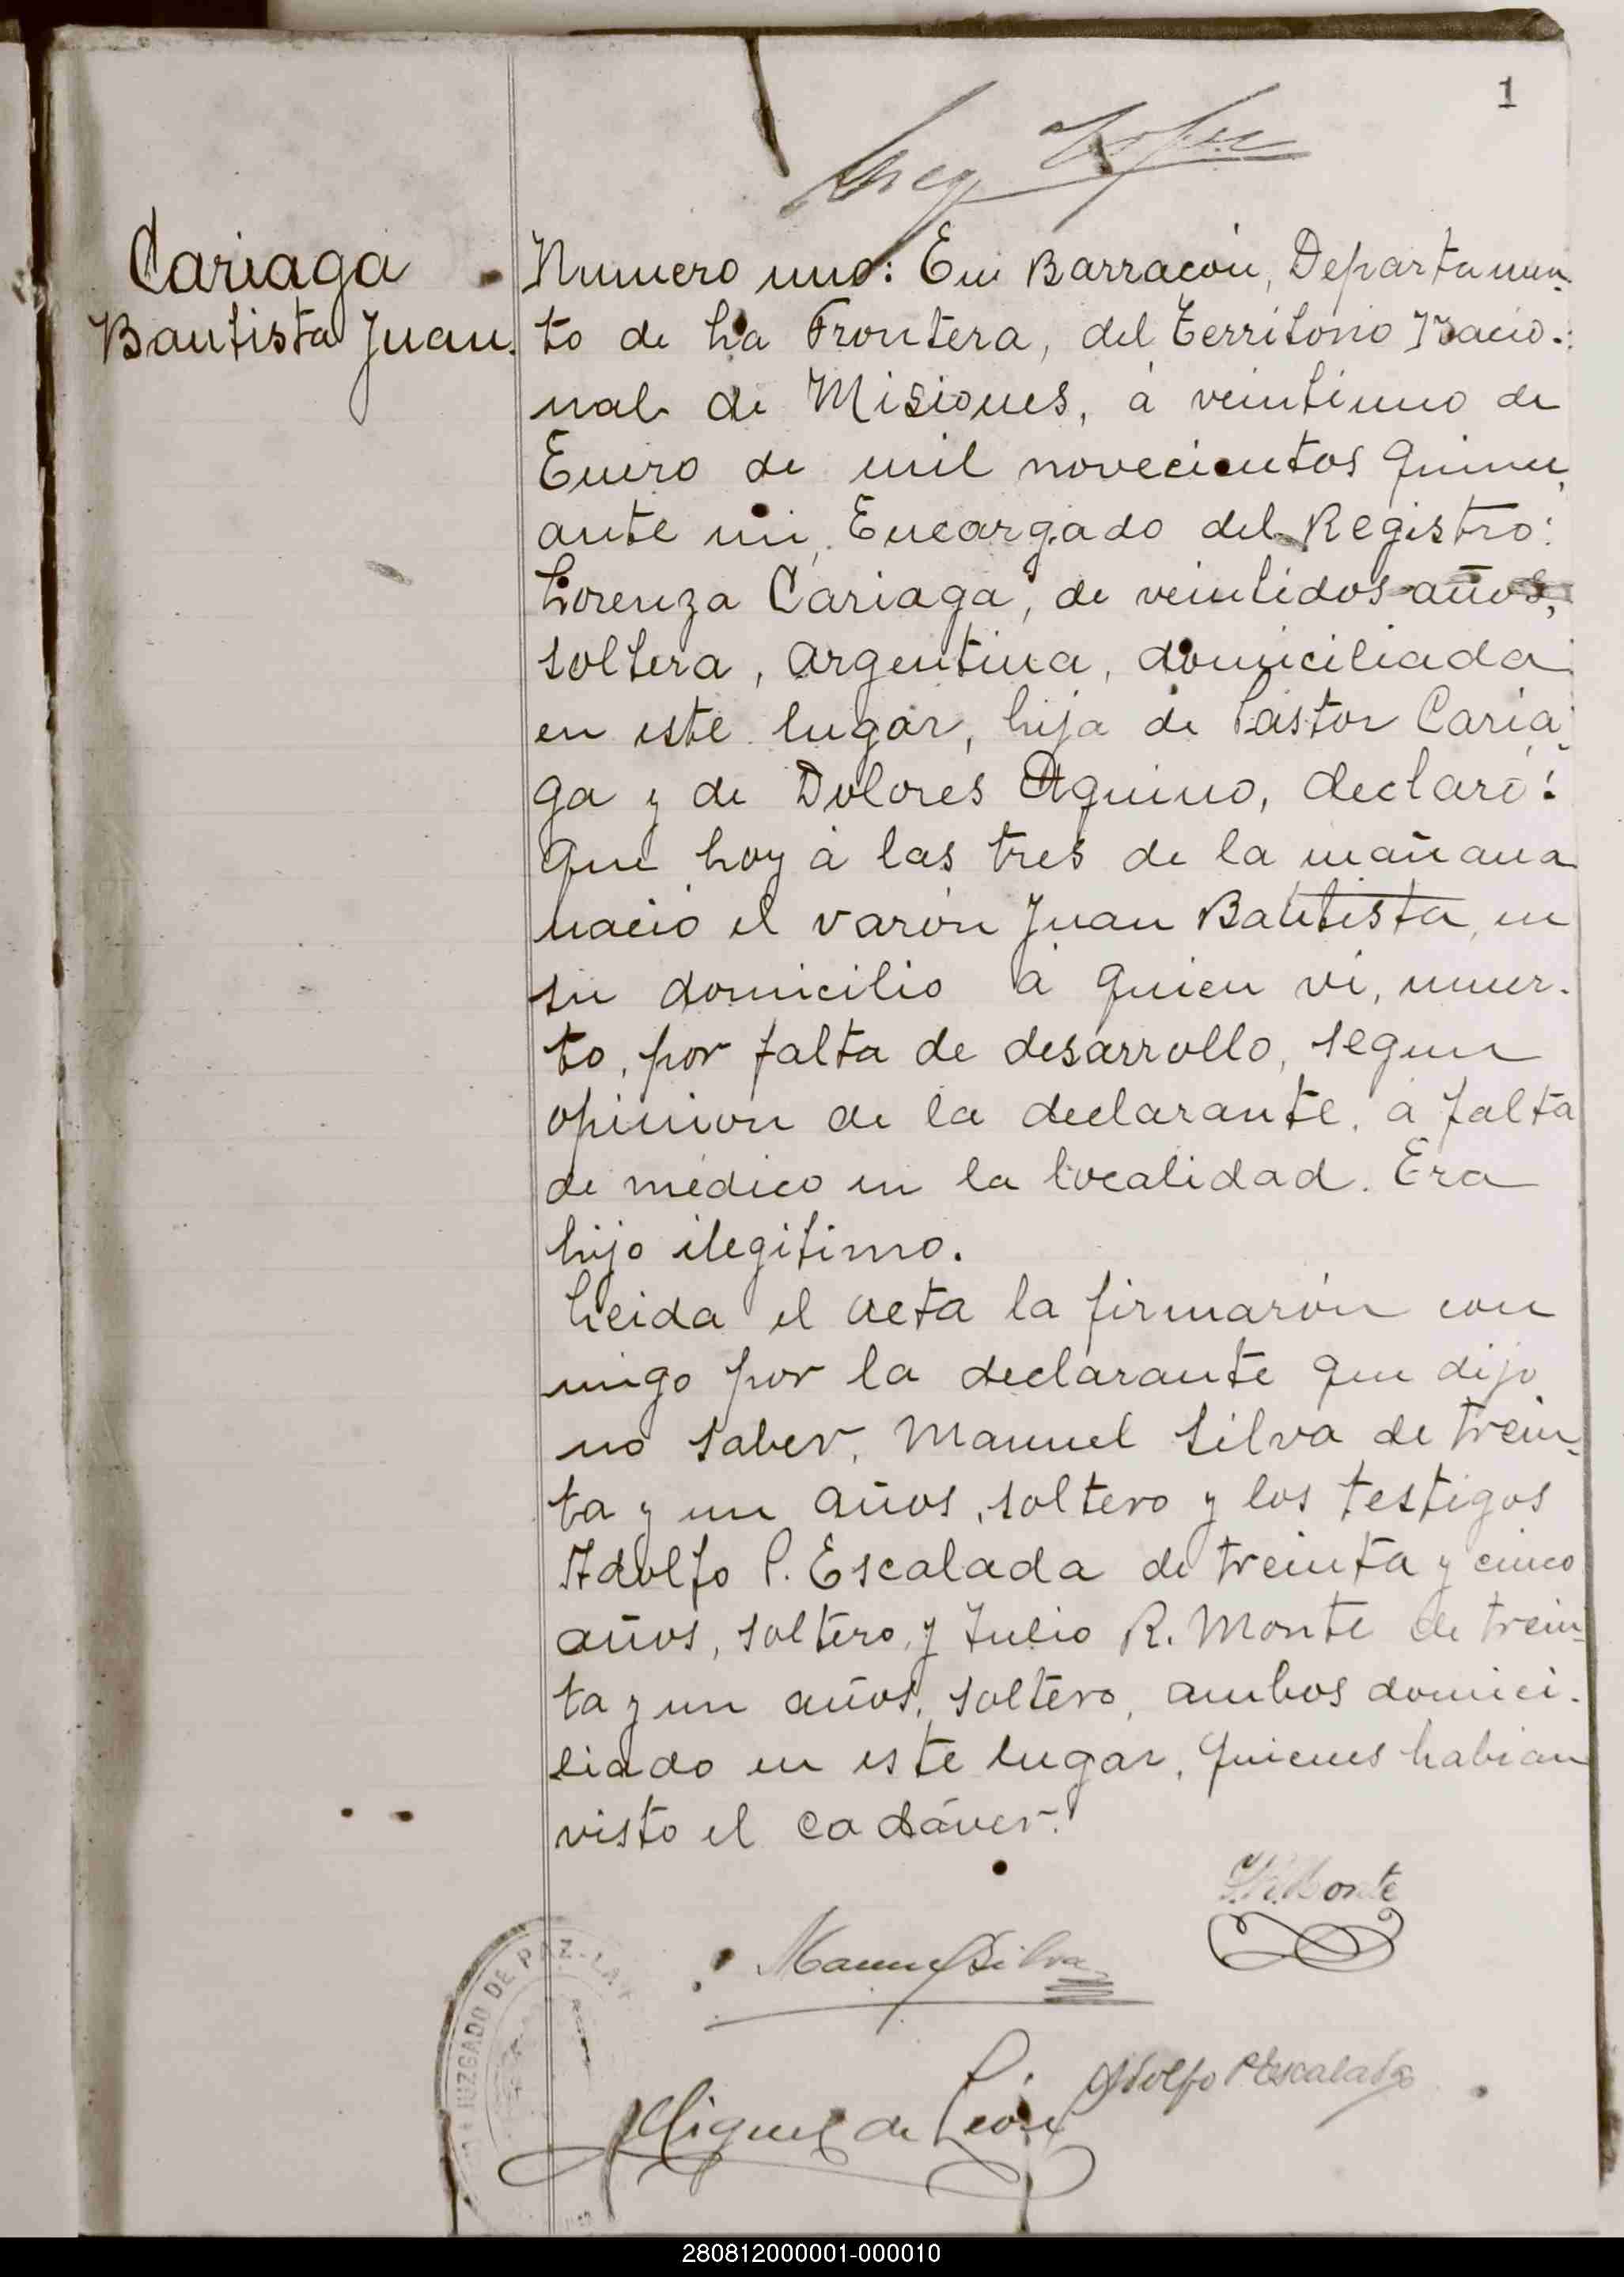 1
Cariaga
Bautista Juan.
Numero uno: En Barracón, Departamen-
to de La Frontera, del Territorio Nacio-
nal de Misiones, á veintiuno de
Enero de mil novecientos quince,
ante mi, Encargado del Registro:
Lorenza Cariaga, de veintidos años,
soltera, argentina, domiciliada
en este lugar, hija de Pastor Caria-
ga y de Dolores Aquino, declaró:
Que hoy á las tres de la mañana
nació el varón Juan Bautista, en
su domicilio á quien vi, muer-
to, por falta de desarrollo, segun
opinion de la declarante, a falta
de médico en la localidad. Era
hijo ilegitimo.
Leida el acta la firmarón con
migo por la declarante que dijo
no saber, Manuel Silva de trein-
ta y un años, soltero y los testigos
Adolfo P. Escalada de treinta y cinco
años, soltero, y Julio R. Monte de trein-
ta y un años, soltero, ambos domici-
liado en este lugar, quienes habian
visto el cadáver.
J.R. Monte
Manuel Silva
Adolfo P Escalada
Miguel de León
JUZGADO DE PAZ - LA
280812000001-000010